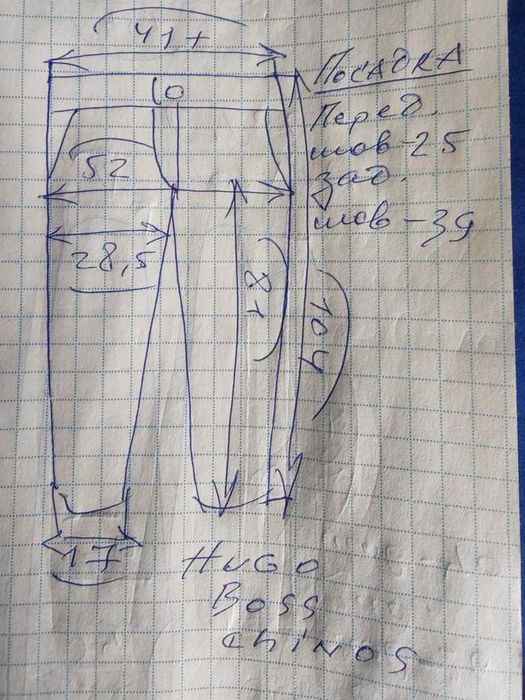 41+
ПОСАДКА
Перед.
шов-25
зад.
шов-39
52
28,5
81
104
17
HUGO
BOSS
chinos